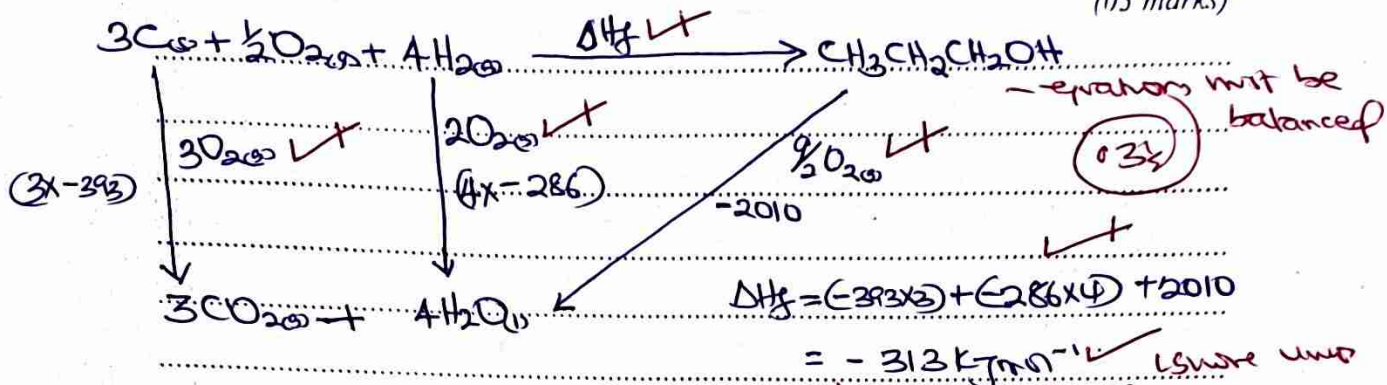 (03 marks)
3C(s) + ½O2(g) + 4H2(g) ΔHf CH3CH2CH2OH
- equations must be balanced
3O2(g) 2O2(g) 9/2O2(g) 03½
(3x-393) (4x-286) -2010
3CO2(g) + 4H2O(l) ΔHf = (-393x3) + (-286x4) + 2010
= - 313 kJmol⁻¹ ignore units